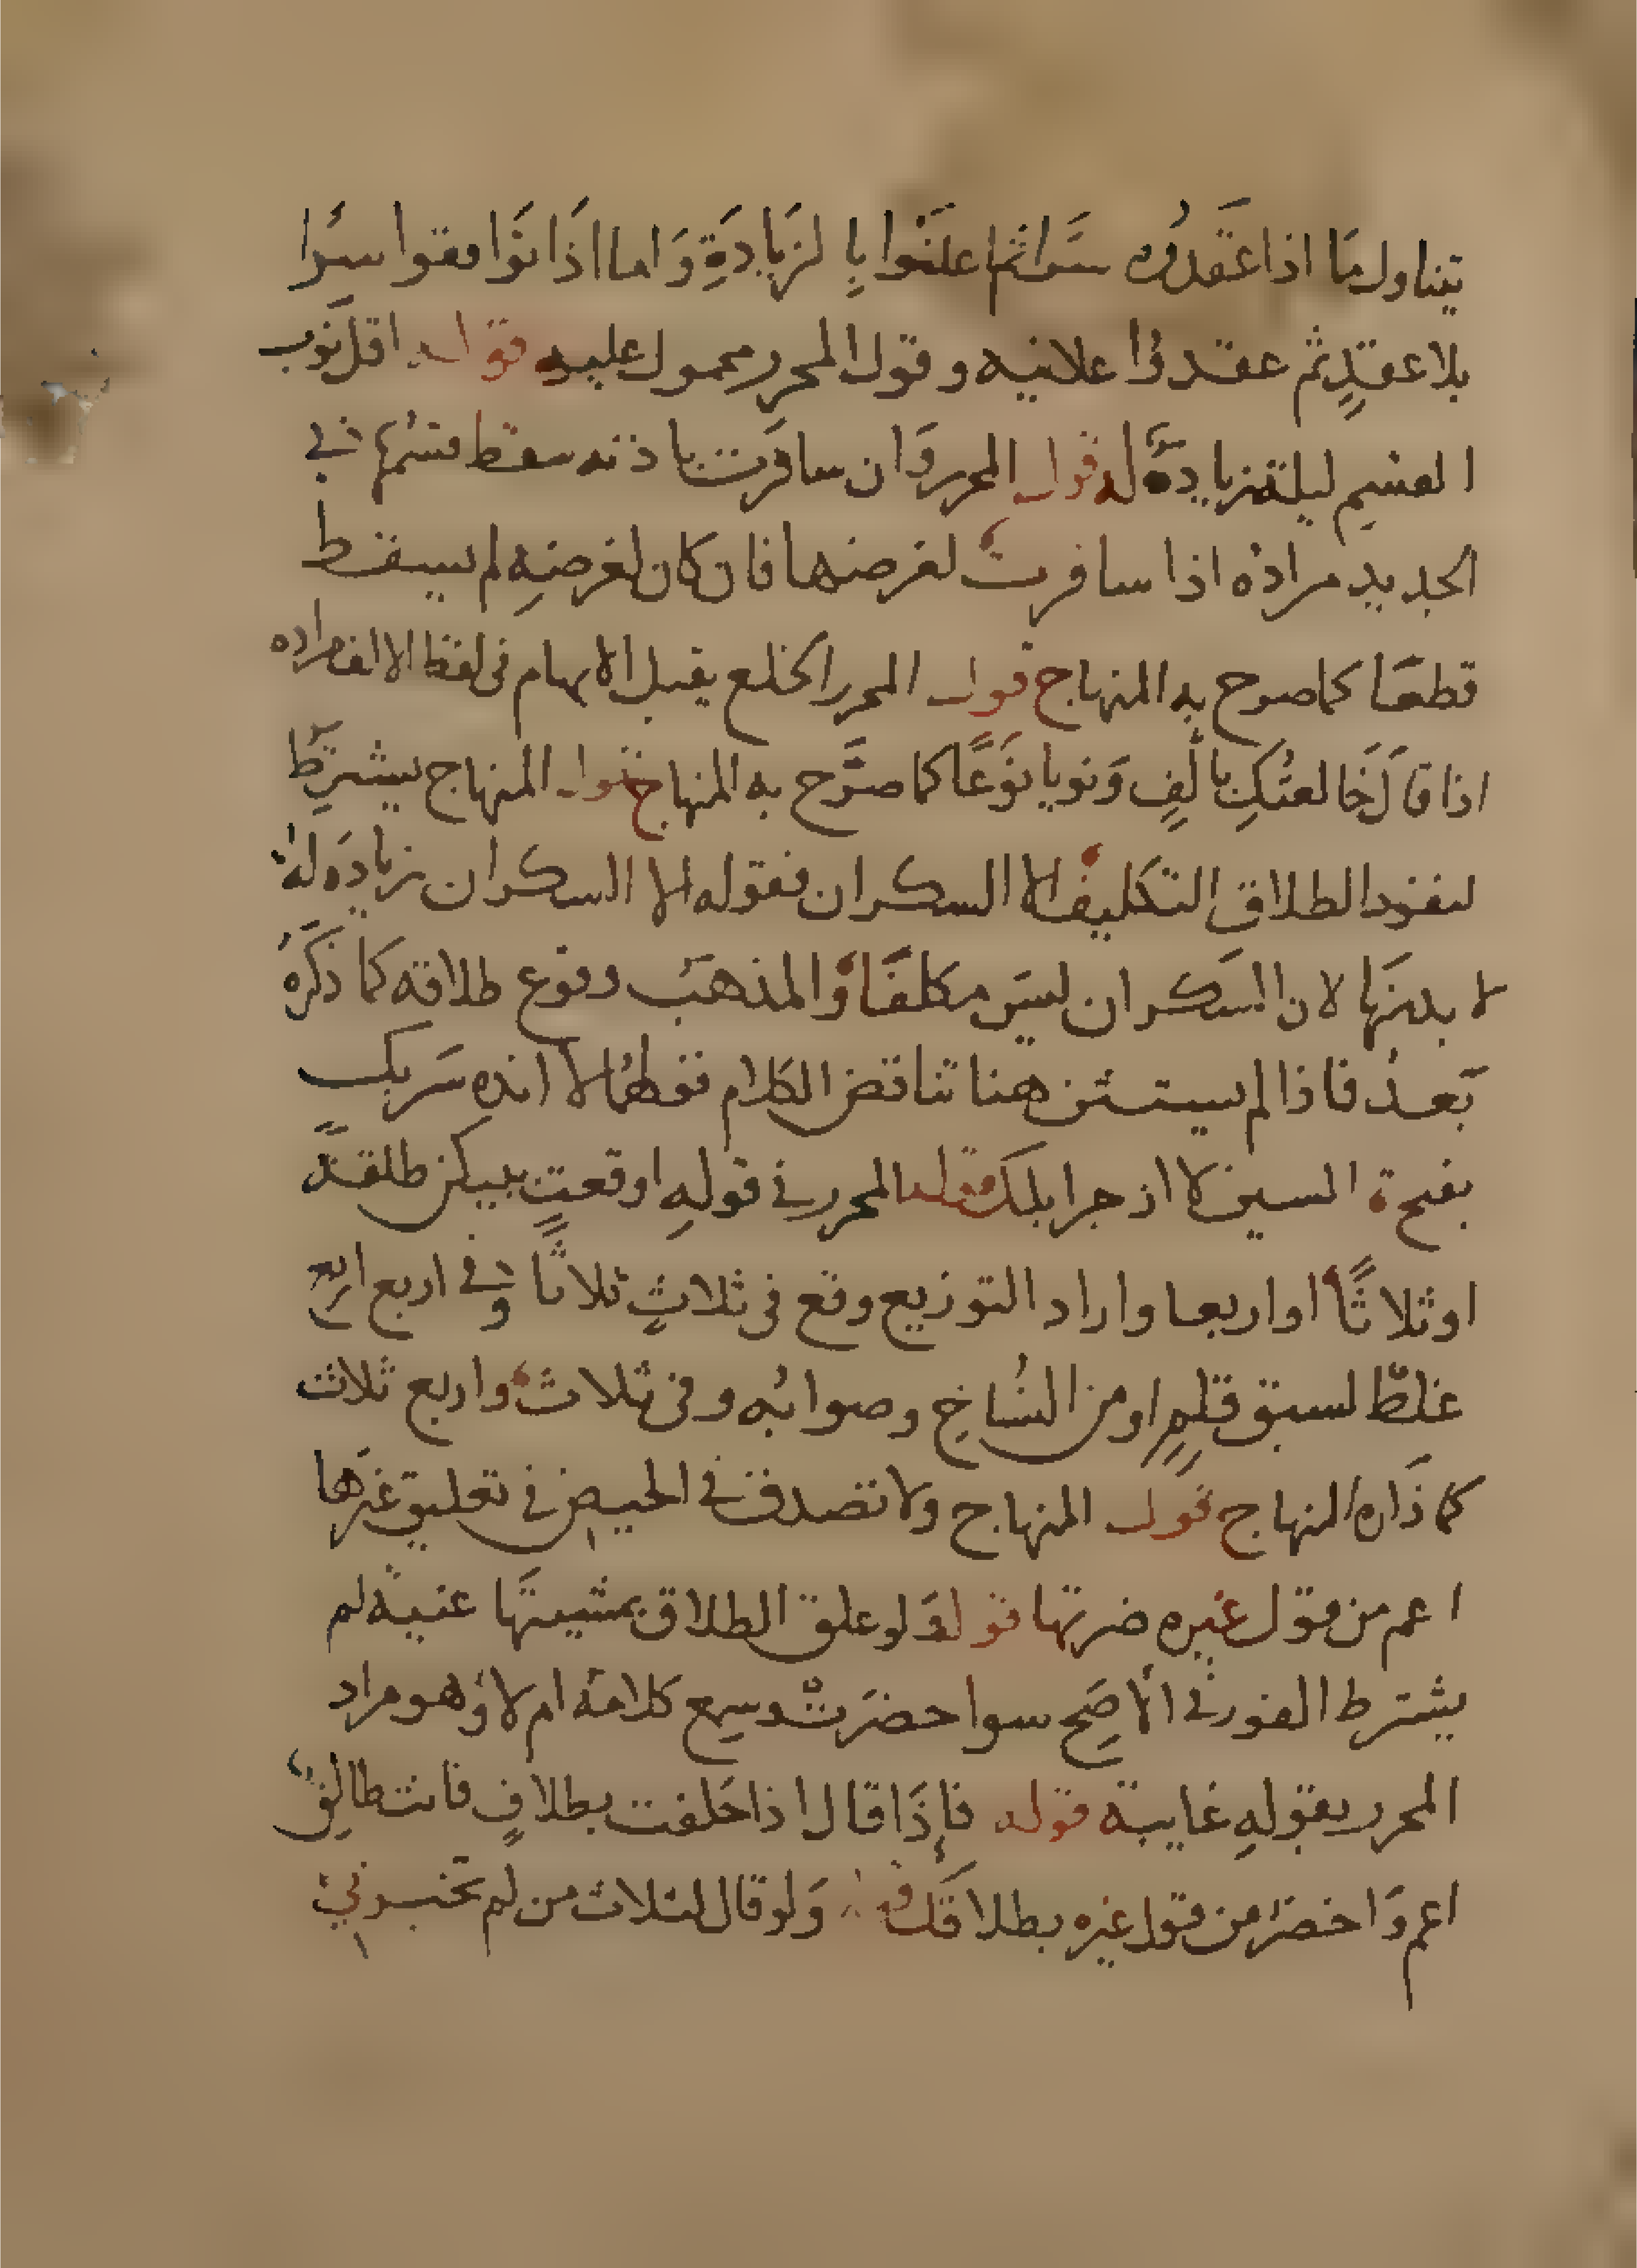 يتناول ما اذا عقدوه سرا ثم اعلنوا بالزيادة واما اذا توافقوا سرا
بلا عقد ثم عقدوا علانيه وقول المحرر محمول عليه قوله اقل نوب
القسم ليلة زيادة له قول المحرر وان سافرت باذنه سقط قسمها في
الجديد مراده اذا سافرت لغرضها فان كان لغرضه لم يسقط
قطعا كما صرح به المنهاج قول المحرر الخلع يقبل الابهام في لفظ الالف مراده
اذا قال خالعتك بالف ونويا نوعا كما صرح به المنهاج قول المنهاج يشترط
لنفوذ الطلاق التكليف الا السكران فقوله الا السكران زيادة له
لا بد منها لان السكران ليس مكلفا والمذهب وقوع طلاقه كما ذكره
بعد فاذا لم يستثن هنا تناقض الكلام قولهما لا انده سربك
بفتح السين لا ازجر ابلك قوله المحرر في قوله اوقعت بينكن طلقة
او ثلاثا او اربعا واراد التوزيع وقع في ثلاث ثلاثا وفي اربع اربع
غلط لسبق قلم او من النساخ وصوابه وفي ثلاث واربع ثلاث
كما ذكره المنهاج قول المنهاج ولا تصدق في الحيض في تعليق غيرها
اعم من قول غيره ضرتها قوله ولو علق الطلاق بمشيتها غيبة لم
يشترط الفور في الاصح سوا حضرت وسمع كلامه ام لا وهو مراد
المحرر بقوله غايبة قوله فاذا قال اذا حلفت بطلاق فانت طالق
اعم واخصر من قول غيره بطلاقك قوله ولو قال لثلاث من لم تخبرني